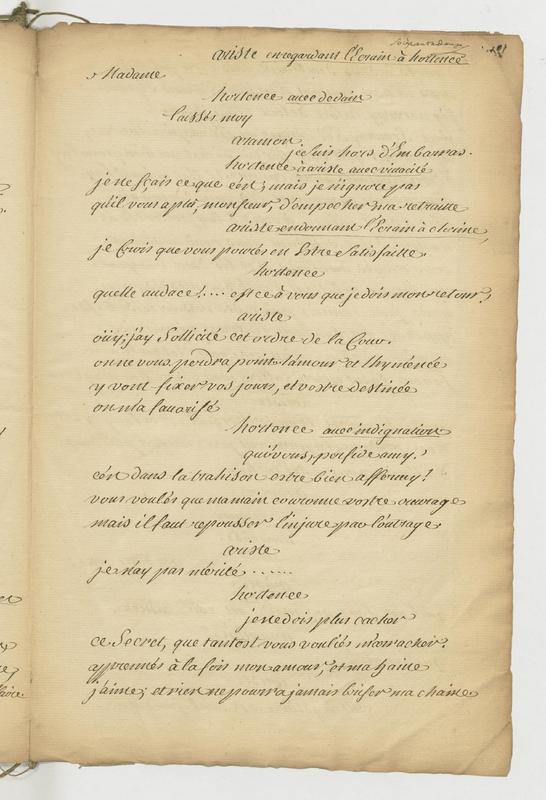 ariste en regardant l'Ecrain à hortence
Madame
hortence avec dedain
laissés moy
cramon
je suis hors d'Embarras.
hortence à ariste avec vivacité
je ne sçais ce que c'est; mais je n'ignore pas
qu'il vous a plû, monsieur, d'empecher ma retraitte
ariste en donnant l'Ecrain à clerine,
je Crois que vous pourés en Estre Satisfaitte.
hortence
quelle audace!.... est ce à vous que je dois mon retour?
ariste
oüy; j'ay Sollicité cet ordre de la Cour.
on ne vous perdra point, l'amour et l'hymenée
y vont fixer vos jours, et vostre destinée
on m'a favorisé
hortence avec indignation
qui? vous, perfide amy?
c'est dans la trahison estre bien affermy!
vous voulés que ma main couronne vostre ouvrage
mais il faut repousser l'injure par l'outrage.
ariste
je n'ay pas mérité ......
hortence
je ne dois plus cacher
ce Secret, que tantost vous vouliés m'arracher.
apprenés à la fois mon amour, et ma haine
j'aime; et rien ne pourra jamais briser ma chaine.